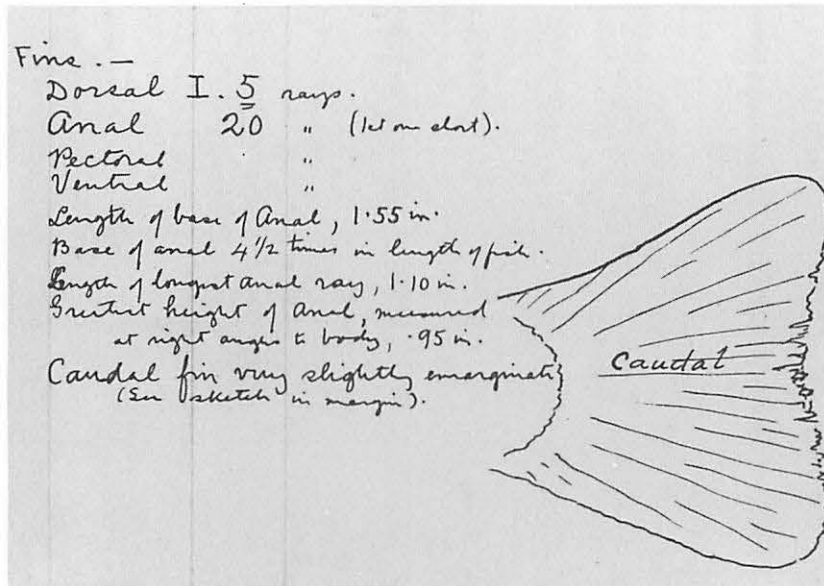 Fins. —
Dorsal I. 5 rays.
Anal 20 " (1st one short).
Pectoral "
Ventral "
Length of base of Anal, 1·55 in.
Base of anal 4 1/2 times in length of fish.
Length of longest anal ray, 1·10 in.
Greatest height of Anal, measured
at right angles to body, ·95 in.
Caudal fin very slightly emarginate
(See sketch in margin).
Caudal